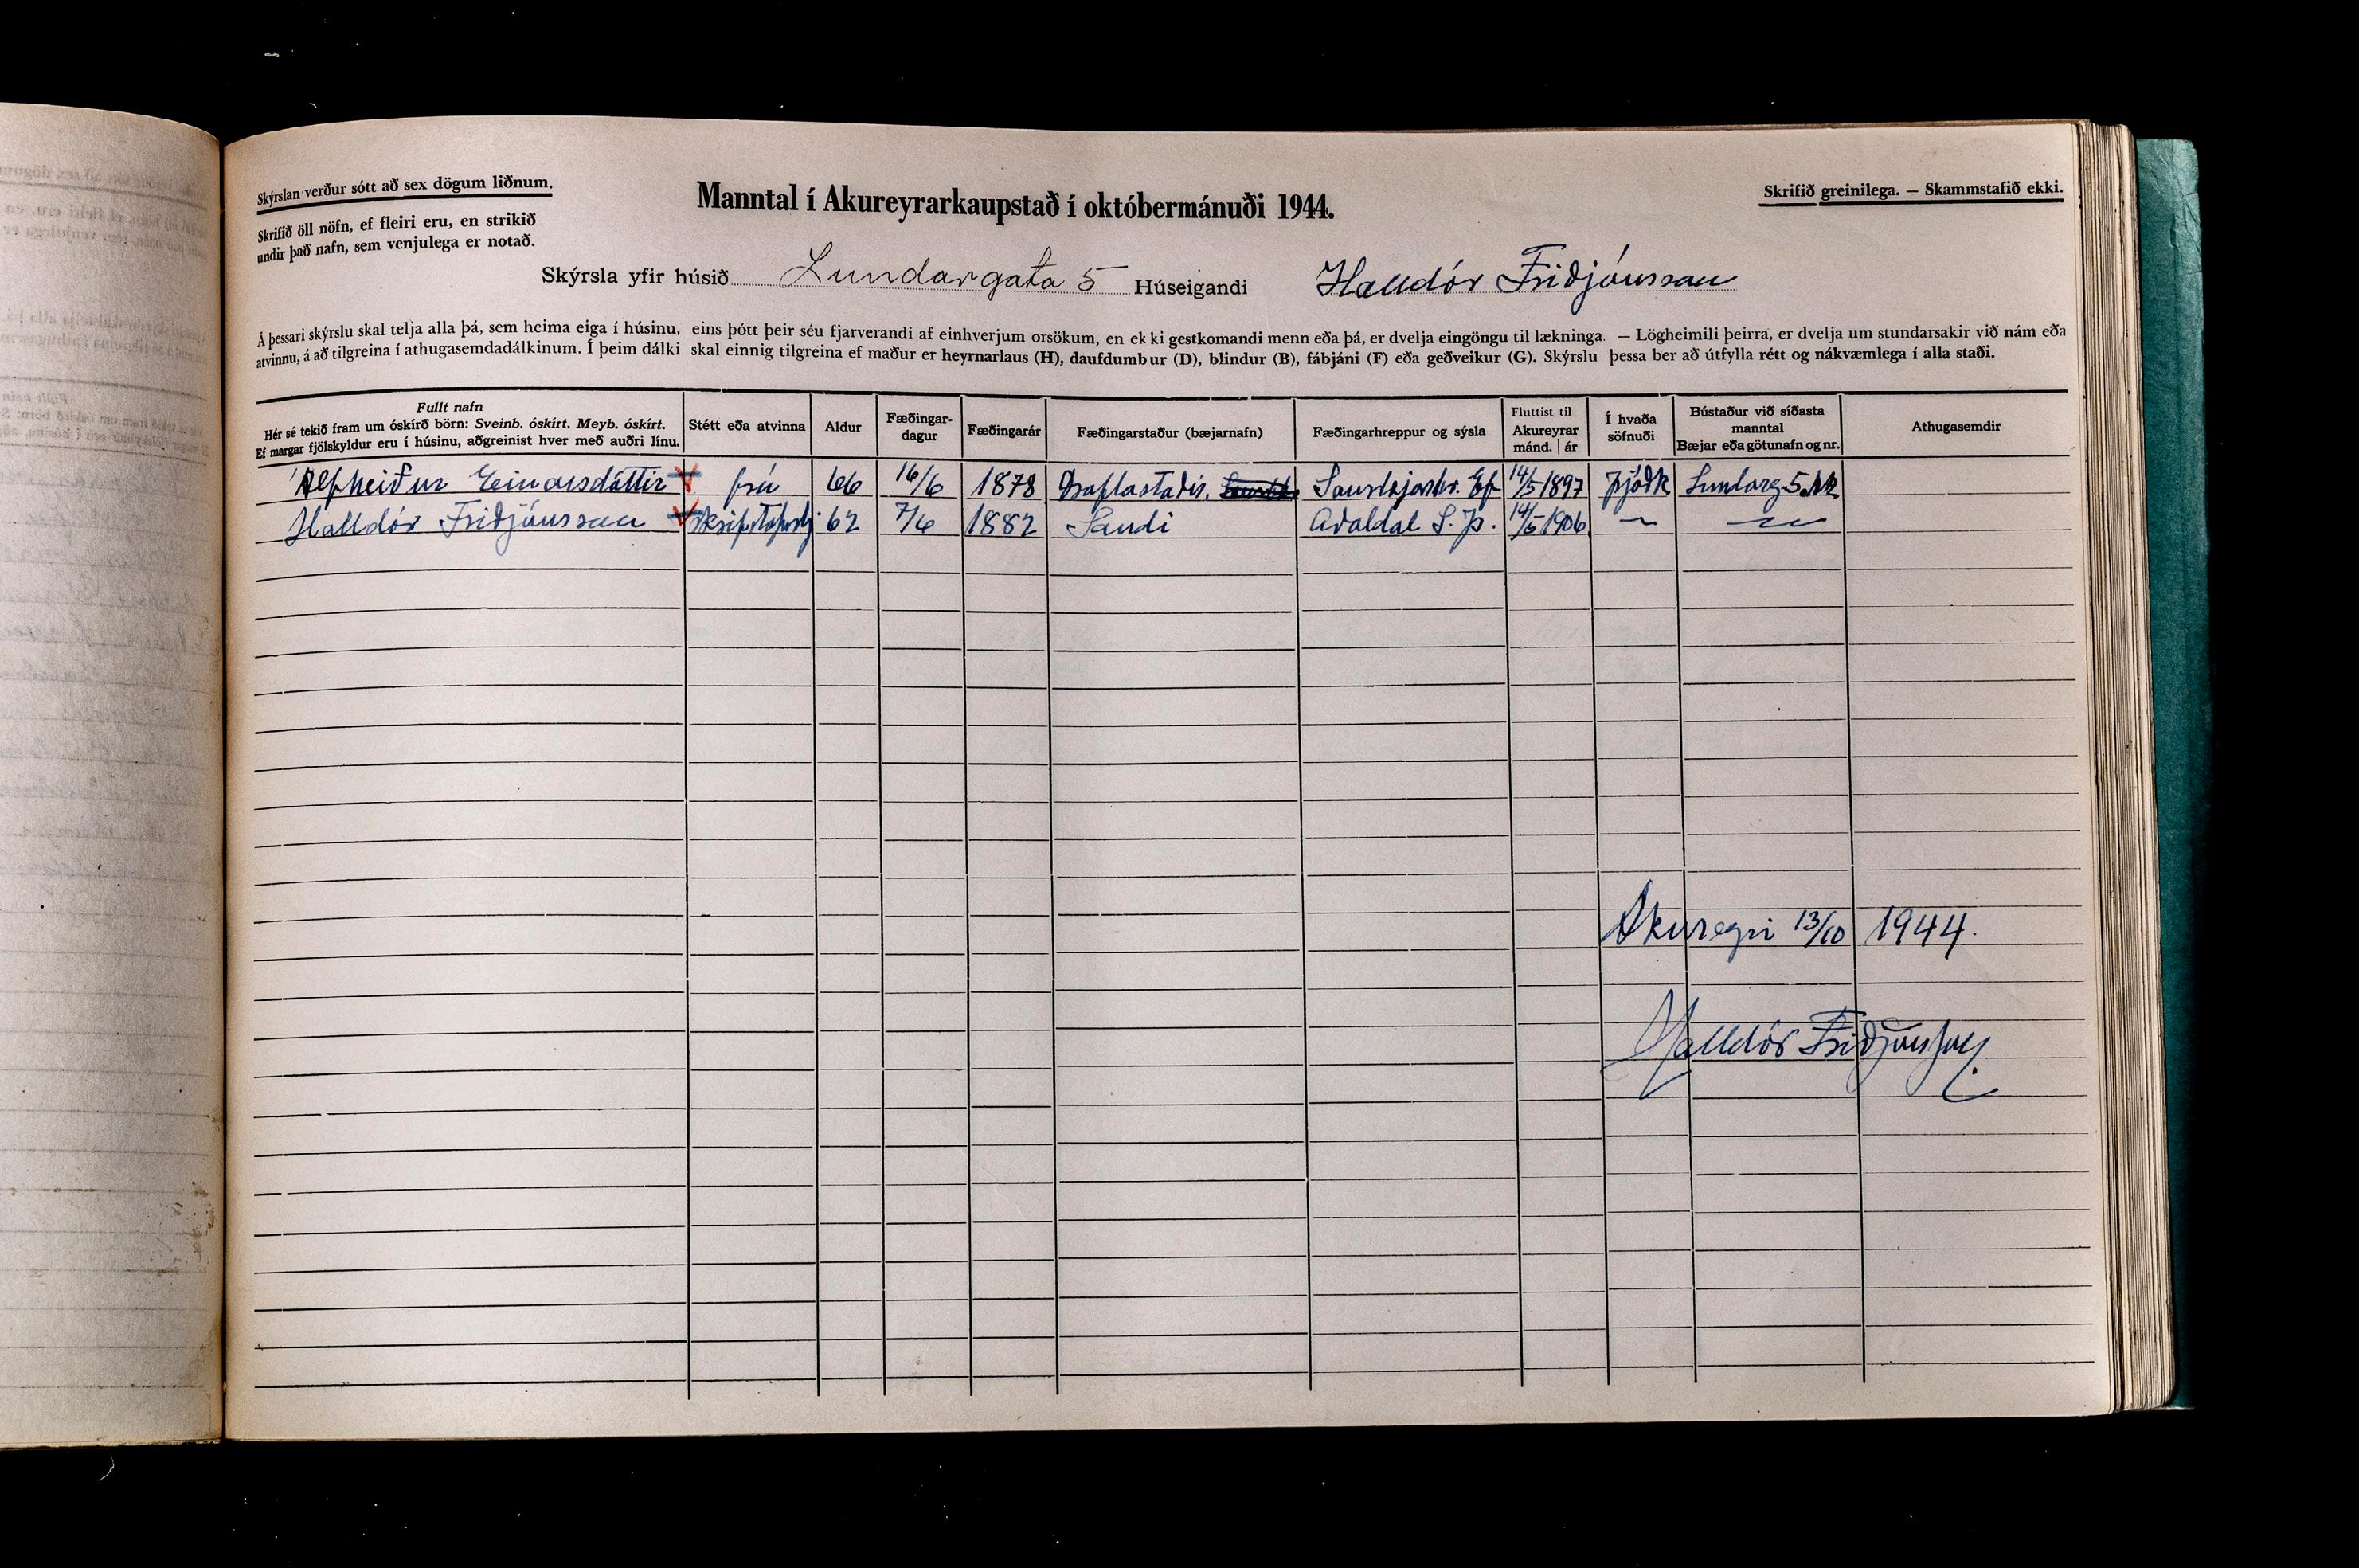 Skýrslan verður sótt að sex dögum liðnum.
Skrifið öll nöfn, ef fleiri eru, en strikið
undir það nafn, sem venjulega er notað.
Manntal í Akureyrarkaupstað í októbermánuði 1944.
Skrifið greinilega. — Skammstafið ekki.
Skýrsla yfir húsið Lundargata 5 Húseigandi Halldór Friðjónsson
Á þessari skýrslu skal telja alla þá, sem heima eiga í húsinu, eins þótt þeir séu fjarverandi af einhverjum orsökum, en ekki gestkomandi menn eða þá, er dvelja eingöngu til lækninga. — Lögheimili þeirra, er dvelja um stundarsakir við nám eða
atvinnu, á að tilgreina í athugasemdadálkinum. Í þeim dálki skal einnig tilgreina ef maður er heyrnarlaus (H), daufdumbur (D), blindur (B), fábjáni (F) eða geðveikur (G). Skýrslu þessa ber að útfylla rétt og nákvæmlega í alla staði.
Fullt nafn
Hér sé tekið fram um óskírð börn: Sveinb. óskírt. Meyb. óskírt.
Ef margar fjölskyldur eru í húsinu, aðgreinist hver með auðri línu.
Stétt eða atvinna
Aldur
Fæðingar-
dagur
Fæðingarár
Fæðingarstaður (bæjarnafn)
Fæðingarhreppur og sýsla
Fluttist til
Akureyrar
mánd. | ár
Í hvaða
söfnuði
Bústaður við síðasta
manntal
Bæjar eða götunafn og nr.
Athugasemdir
Álfheiður Einarsdóttir frú 66 16/6 1878 Draflastaðir. Saurbæjarhr. Ef 14/5 1897 Þjóðk Lundarg 5. Ak
Halldór Friðjónsson 62 7/6 1882 Sandi Aðaldal S. Þ. 14/5 1906 〃 〃
Akureyri 13/10 1944.
Halldór Friðjónsson.